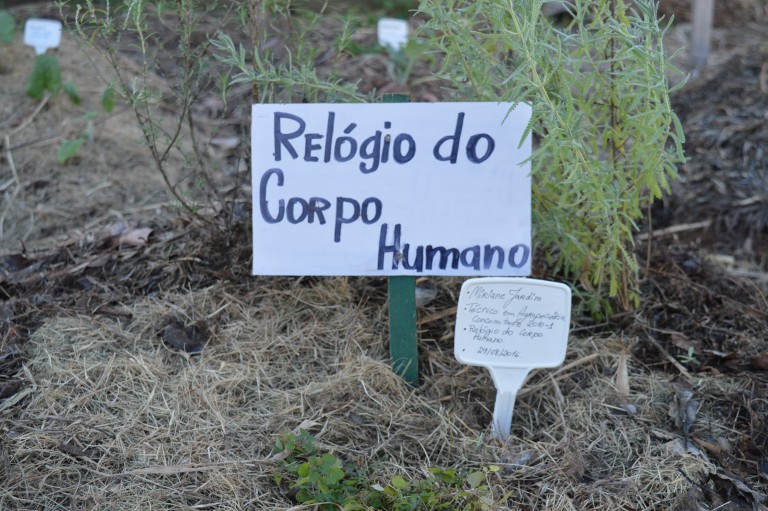 Relógio do
Corpo
Humano
• Miriane Jardim
• Técnico em Agropecuária
Concomitante 2016-1
• Relógio do Corpo
Humano
29/08/2016.